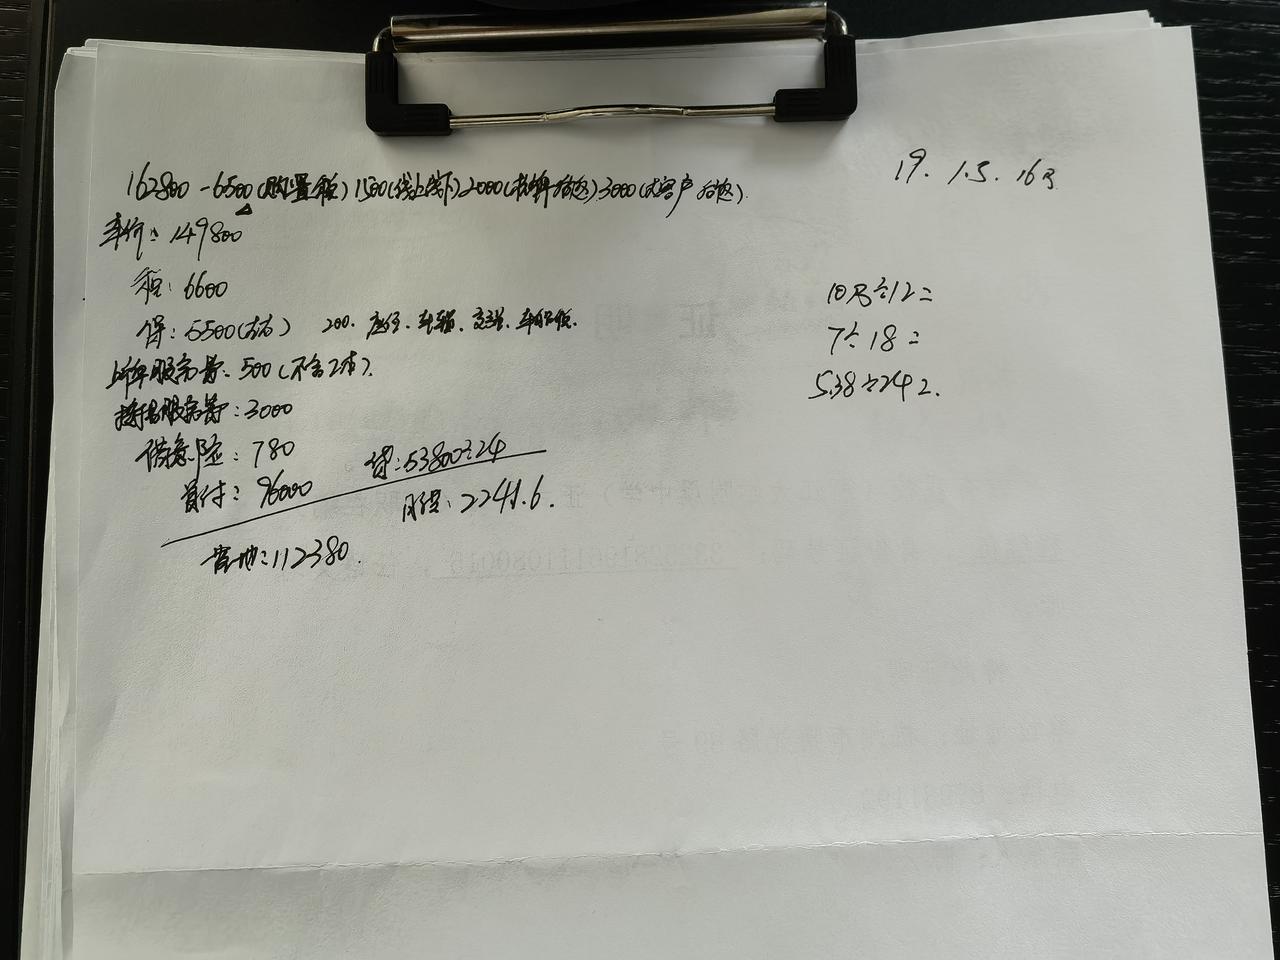 162800-6500(购置税)1500(线上线下)2000(挂牌后返)3000(大客户后返).
19. 1.5. 16号
车价: 149800
税: 6600
保: 5500(左右) 200. 座位. 车损. 交强. 车船税.
上牌服务费. 500(不含工本).
服务费: 3000
险: 780
首付: 96000
贷: 53800÷24
月供: 2241.6.
落地: 112380.
10万÷12=
7÷18=
5.38÷24=.